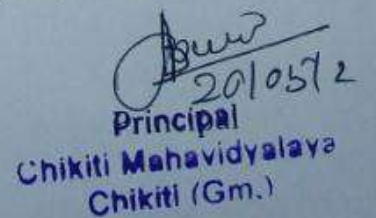 20/05/2
Principal
Chikiti Mahavidyalaya
Chikiti (Gm.)